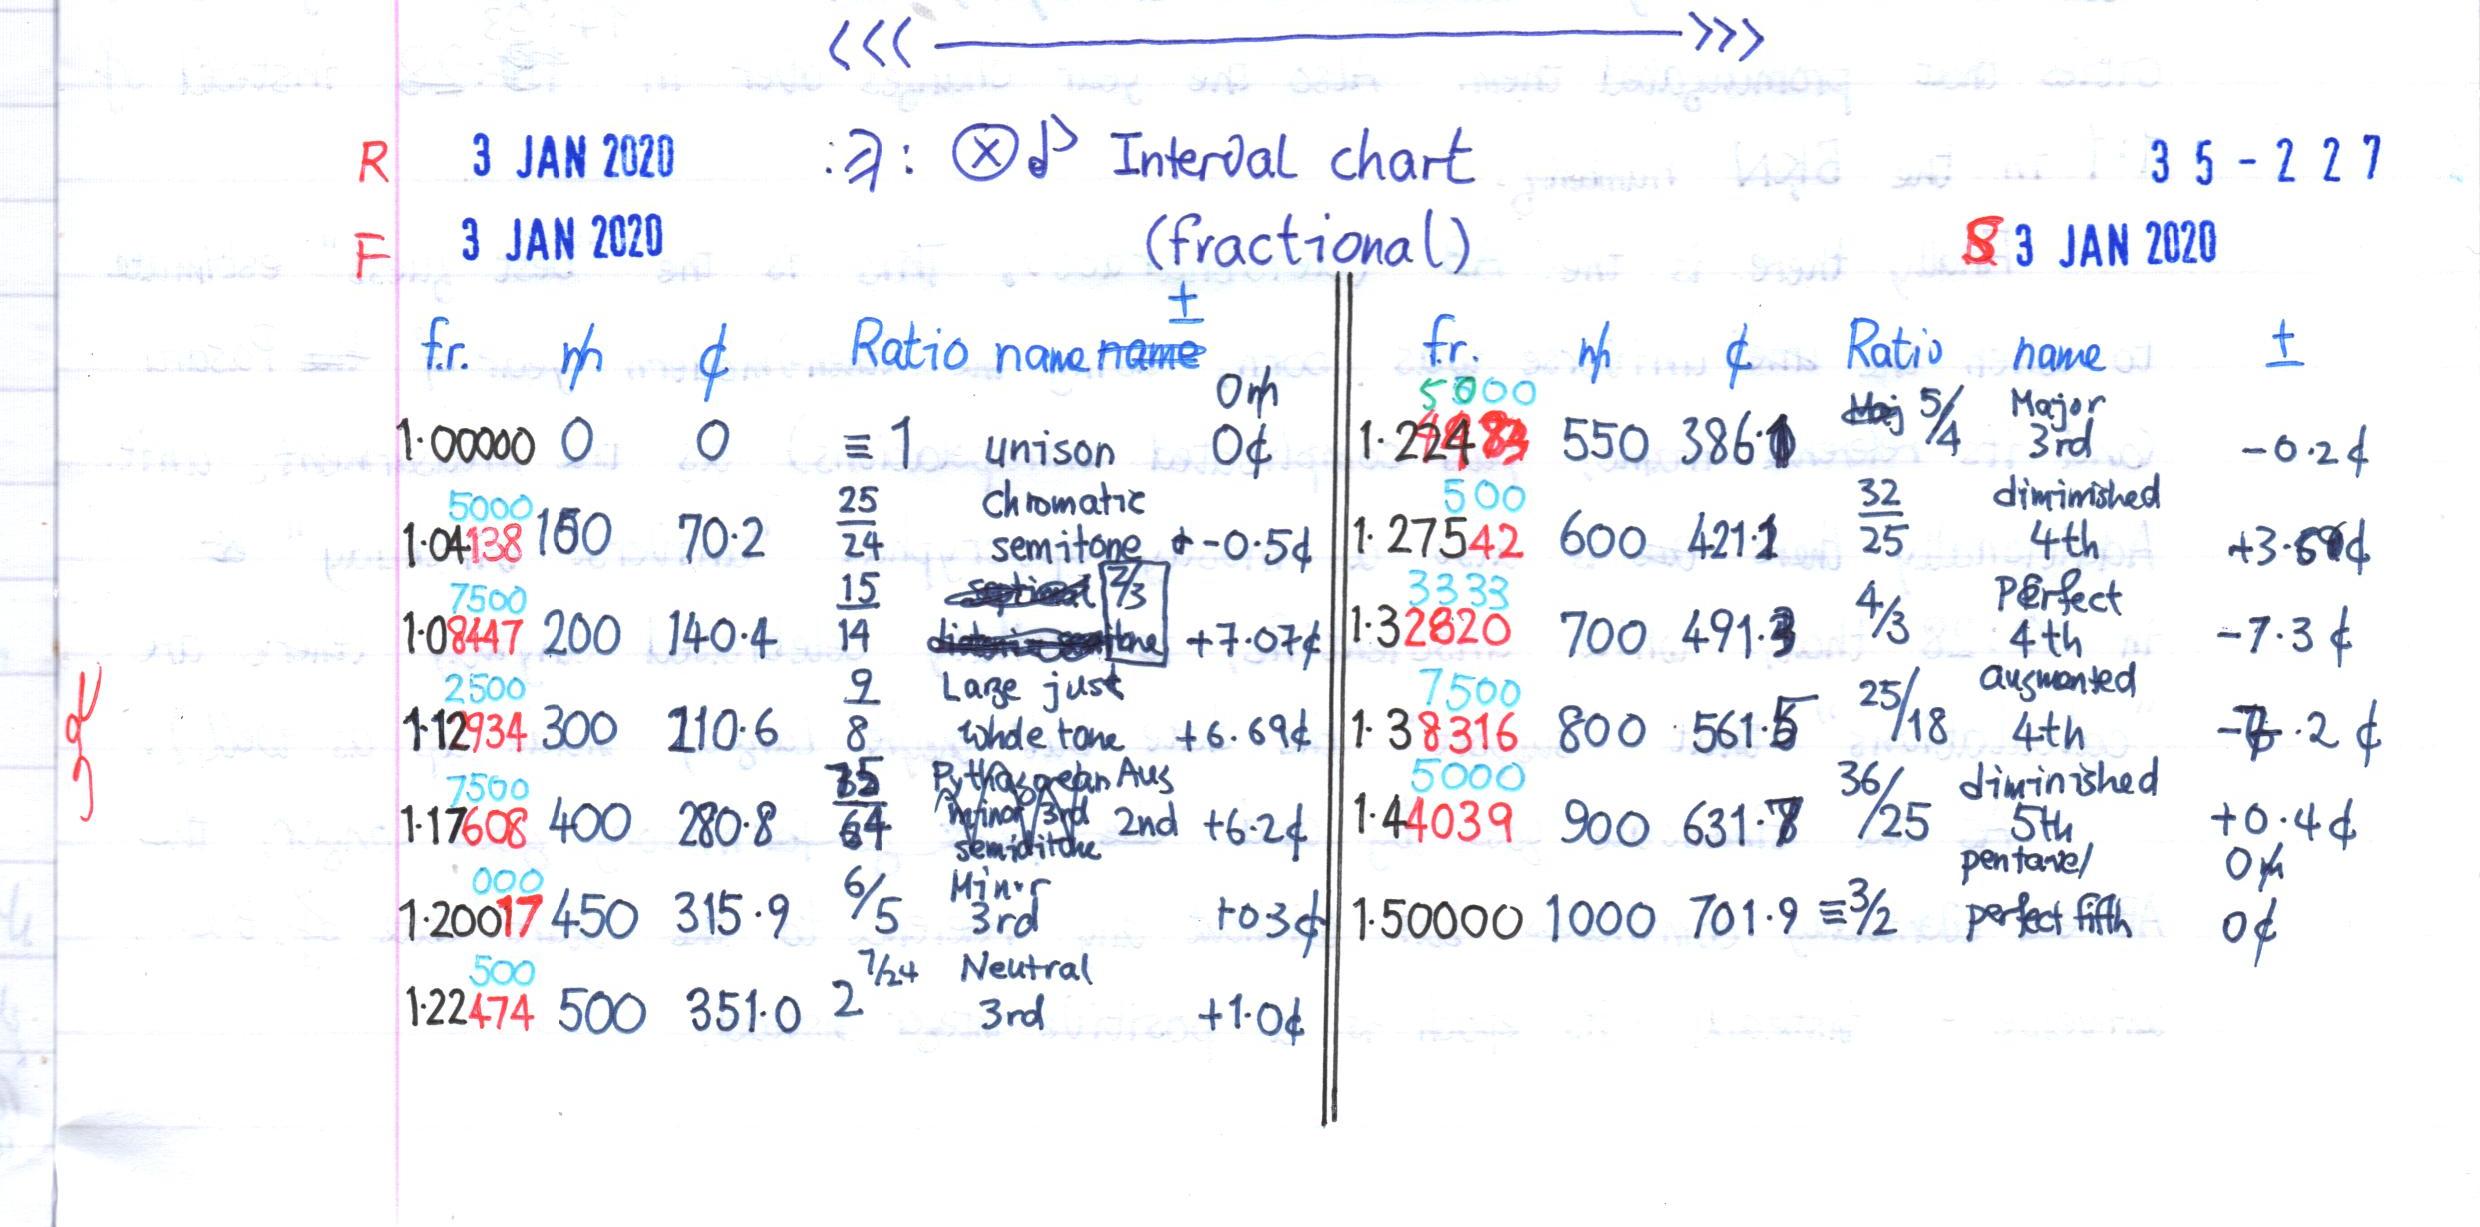 <<< >>>
R 3 JAN 2020 Interval chart 35-227
F 3 JAN 2020 (fractional) S 3 JAN 2020
±
f.r. ₥ ¢ Ratio name name
0₥
1.00000 0 0 ≡ 1 unison 0¢
5000 25 Chromatic
1.04138 150 70.2 24 semitone -0.5¢
7500 15 2/3
1.08447 200 140.4 14 tone +7.07¢
2500 9 Large just
1.12934 300 210.6 8 whole tone +6.69¢
7500 75 Pythagorean Aug
minor 3rd
1.17608 400 280.8 64 2nd +6.2¢
semiditone
000 6/5 Minor
1.20017 450 315.9 3rd +03¢
500 7/24 Neutral
1.22474 500 351.0 2 3rd +1.0¢
f.r. ₥ ¢ Ratio name ±
5000 Major
1.224 550 386.1 5/4 3rd -0.2¢
500 32 diminished
1.27542 600 421.1 25 4th
3333 Perfect
1.32820 700 491.3 4/3 4th -7.3¢
7500 augmented
1.38316 800 561.5 25/18 4th
5000 diminished
1.44039 900 631.7 36/25 5th +0.4¢
pentave/ 0₥
1.50000 1000 701.9 ≡ 3/2 perfect fifth 0¢